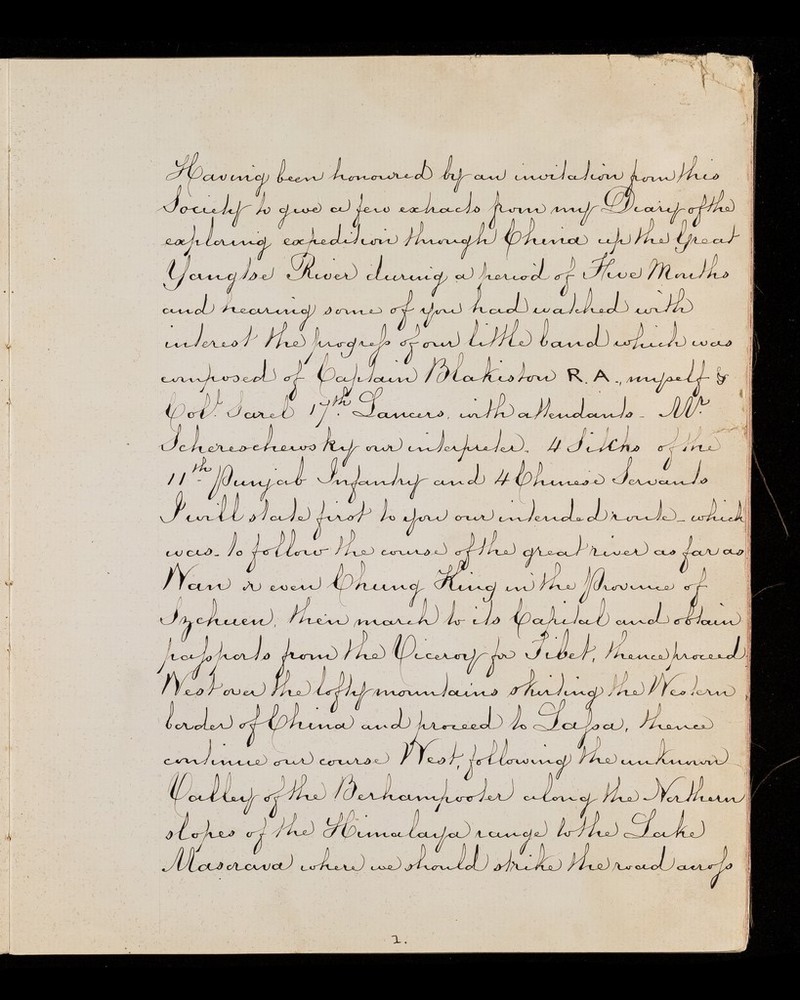 Having been honoured by an invitation from this
Society to give a few extracts from my Diary of the
exploring expedition through China up the Great
Yangtse River during a period of Five Months
and hearing some of you had watched with
interest the progress of our little band which was
composed of Captain Blakiston R.A., myself &
Colˡ. Sarel 17th. Lancers, with attendants - Mr.
Schereschewsky our interpreter, 4 Sikhs of the
11th Punjab Infantry and 4 Chinese Servants
I will state first to you our intended route - which
was - to follow the course of the great river as far as
Wan or even Chung King in the Province of
Szchuen, then march to its Capital and obtain
passports from the Viceroy for Tibet, thence proceed
West over the lofty mountains skirting the Western
border of China and proceed to Lassa, thence
continue our course West, following the unknown
Valley of the Berhampooter along the Northern
slopes of the Himalaya range to the Lake
Masorava where we should strike the road across
1.